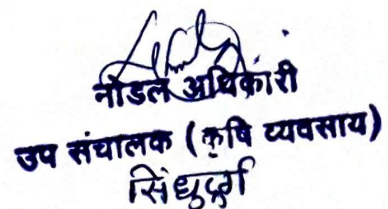 नोडल अधिकारी
उप संचालक (कृषि व्यवसाय)
सिंधुदुर्ग